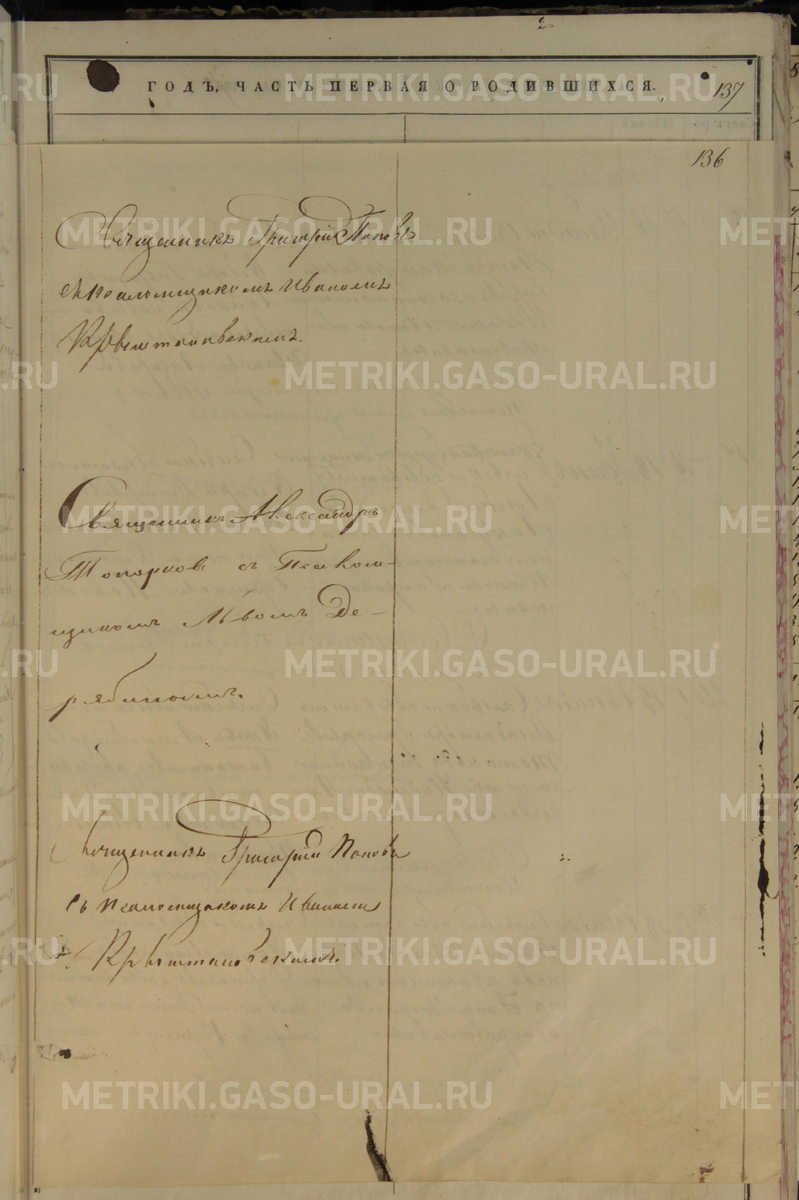 ГОДЪ, ЧАСТЬ ПЕРВАЯ О РОДИВШИХСЯ.
137
136
Священникъ Григорій Поповъ
съ псаломщикомъ Иваномъ
Крыштановскимъ.
Священникъ Александръ
Топорковъ съ Псалом-
щикомъ Львомъ Де-
рябинымъ.
Священникъ Григорій Поповъ
съ псаломщикомъ Иваномъ
Крыштановскимъ.
METRIKI.GASO-URAL.RU